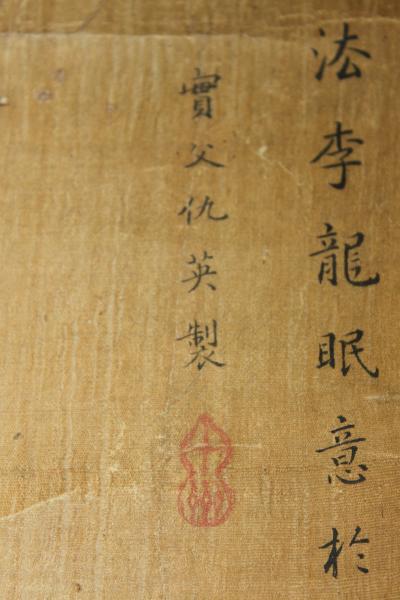 法李龍眠意於
實父仇英製
十洲